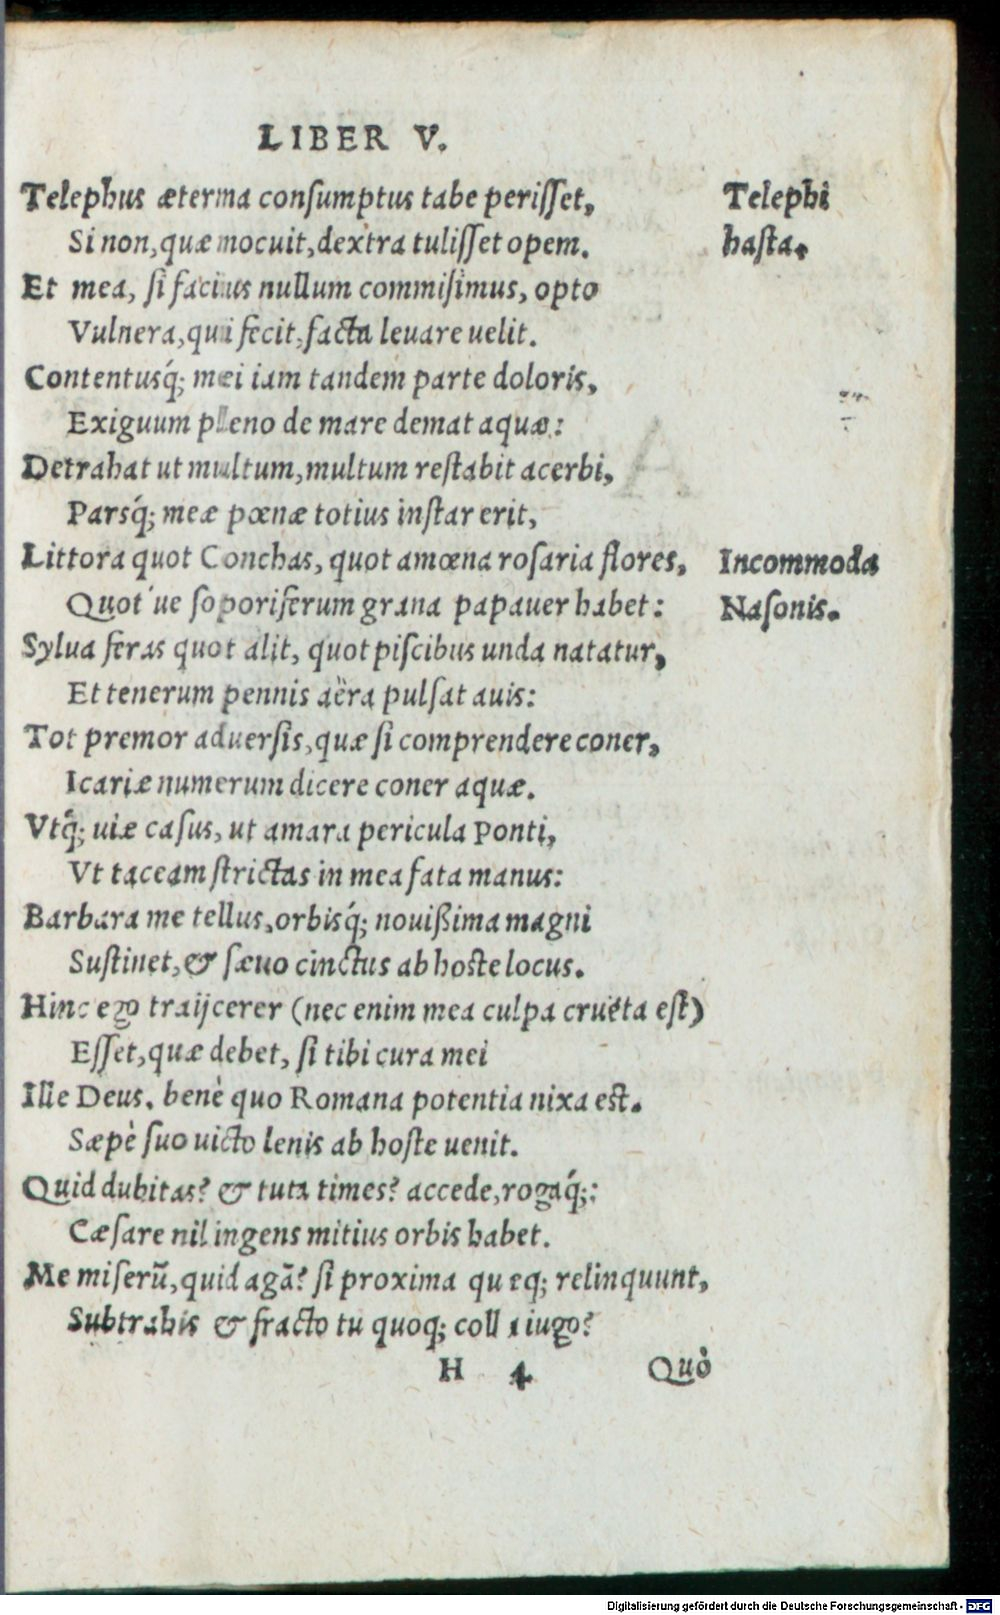 LIBER V.
Telephus æterma consumptus tabe perisset,
Telephi
Si non, quæ nocuit, dextra tulisset opem.
hasta.
Et mea, si facinus nullum commisimus, opto
Vulnera, qui fecit, facta leuare uelit.
Contentusq́; mei iam tandem parte doloris,
Exiguum pleno de mare demat aquæ:
Detrahat ut multum, multum restabit acerbi,
Parsq́; meæ pœnæ totius instar erit,
Littora quot Conchas, quot amœna rosaria flores,
Incommoda
Quot'ue soporiferum grana papauer habet:
Nasonis.
Sylua feras quot alit, quot piscibus unda natatur,
Et tenerum pennis aëra pulsat auis:
Tot premor aduersis, quæ si comprendere coner,
Icariæ numerum dicere coner aquæ.
Vtq́; uiæ casus, ut amara pericula Ponti,
Vt taceam strictas in mea fata manus:
Barbara me tellus, orbisq́; nouißima magni
Sustinet, & sæuo cinctus ab hoste locus.
Hinc ego traijcerer (nec enim mea culpa cruēta est)
Esset, quæ debet, si tibi cura mei
Ille Deus. benè quo Romana potentia nixa est.
Sæpè suo uicto lenis ab hoste uenit.
Quid dubitas? & tuta times? accede, rogaq́;:
Cæsare nil ingens mitius orbis habet.
Me miserū, quid agā? si proxima quæq; relinquunt,
Subtrahis & fracto tu quoq; colla iugo?
H 4
Quò
Digitalisierung gefördert durch die Deutsche Forschungsgemeinschaft - DFG